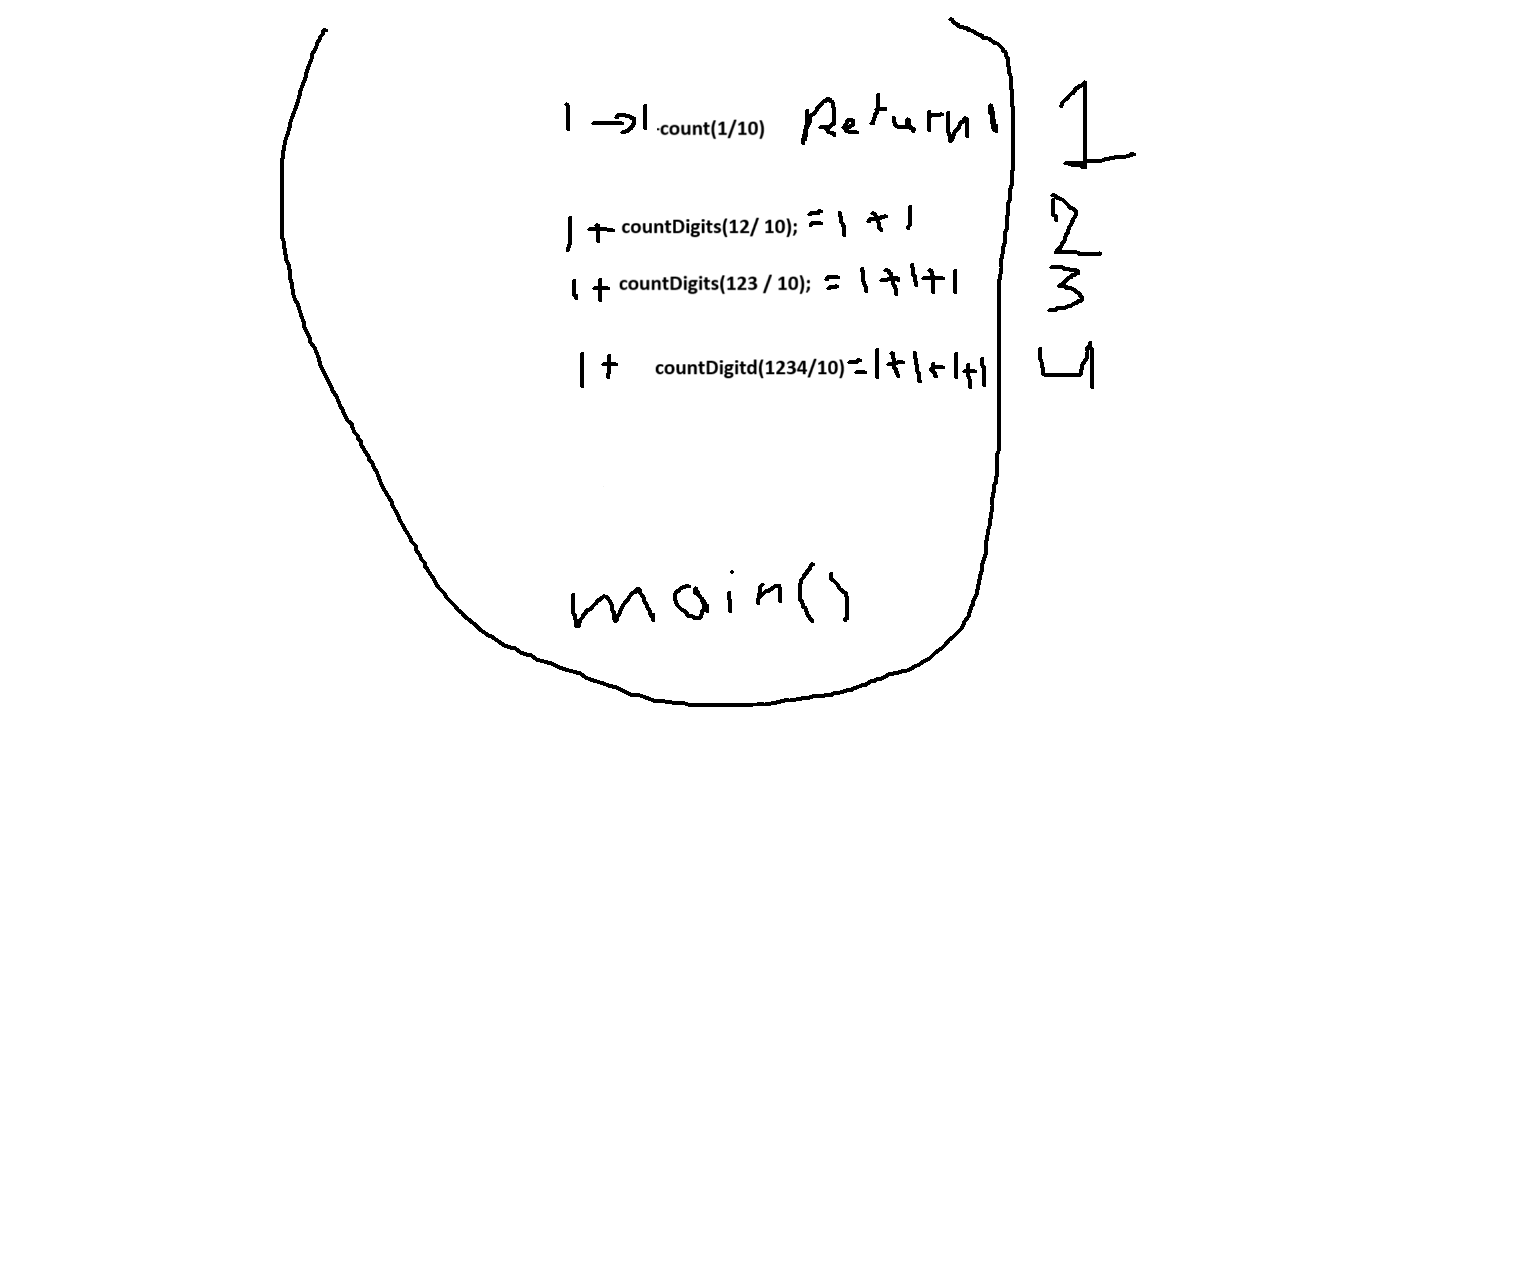 1 → 1 .count(1/10) Return 1 1
1 + countDigits(12/ 10); = 1 + 1 2
1 + countDigits(123 / 10); = 1 + 1 + 1 3
1 + countDigitd(1234/10) = 1 + 1 + 1 + 1 4
main()